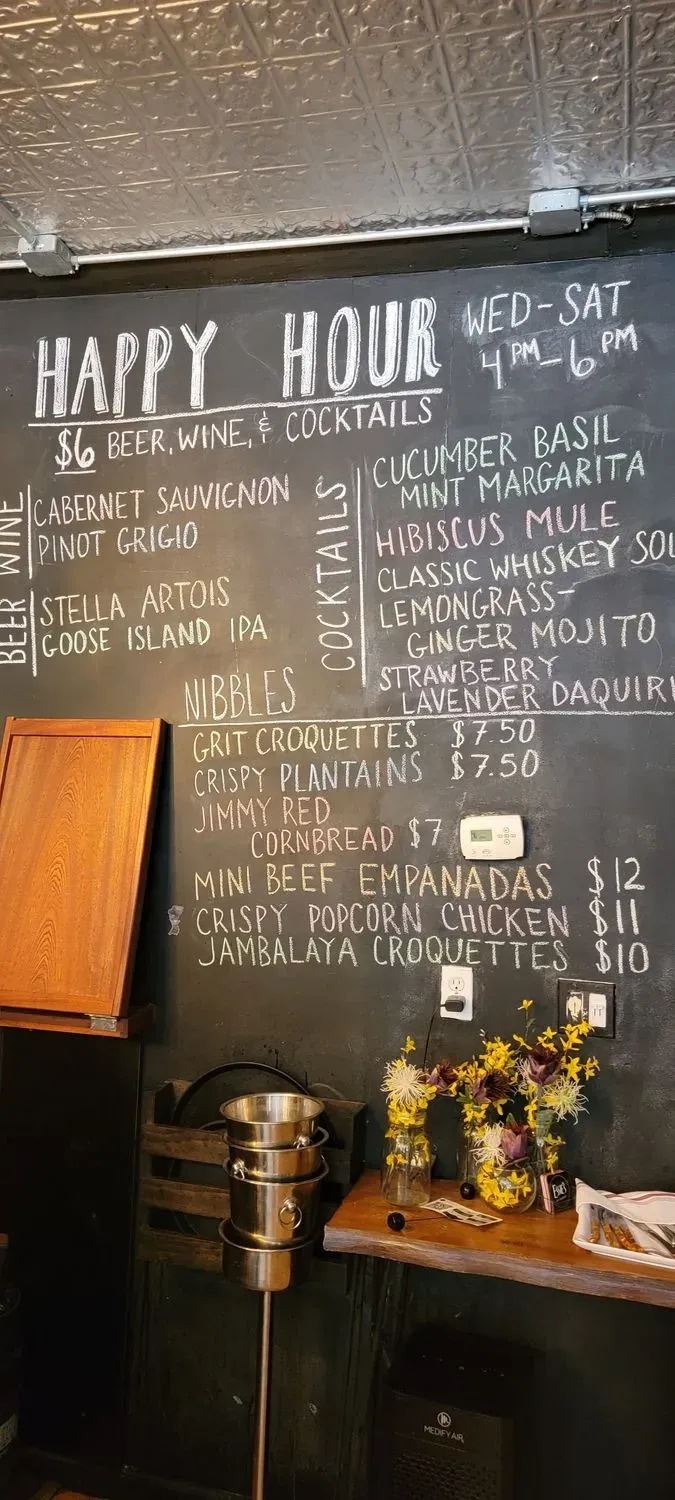 HAPPY HOUR
WED-SAT
4PM-6PM
$6 BEER, WINE, & COCKTAILS
WINE
CABERNET SAUVIGNON
PINOT GRIGIO
BEER
STELLA ARTOIS
GOOSE ISLAND IPA
COCKTAILS
CUCUMBER BASIL
MINT MARGARITA
HIBISCUS MULE
CLASSIC WHISKEY SOU
LEMONGRASS-
GINGER MOJITO
STRAWBERRY
LAVENDER DAQUIRI
NIBBLES
GRIT CROQUETTES $7.50
CRISPY PLANTAINS $7.50
JIMMY RED
CORNBREAD $7
MINI BEEF EMPANADAS $12
CRISPY POPCORN CHICKEN $11
JAMBALAYA CROQUETTES $10
MEDIFY AIR